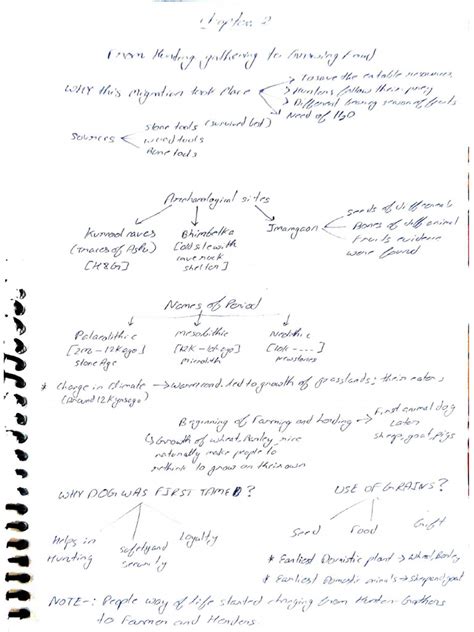 Chapter 2
From Hunting gathering to Growing Food
WHY this Migration took Place
> To save the eatable resources
> Hunters follow their prey
> Different bearing season of fruits
> Need of H2O
Sources
stone tools (survived best)
wood tools
Bone tools
Archaeological sites
Kurnool caves
(Traces of Ash)
[H&G]
Bhimbetka
[old site with
cave rock
shelter]
Inamgaon
seeds of diff cereals
Bones of diff animal
Fruits evidence
were found
Names of Period
Palaeolithic
[2m - 12K ago]
stone Age
mesolithic
[12K - 10K ago]
Microlith
Neolithic
[10K - ---]
new stones
* Change in Climate → Warm cond. led to growth of grasslands; their eaters
(Around 12K yrs ago)
Beginning of Farming and herding → First animal dog
Later
sheep, goat, pigs
↳ Growth of wheat, Barley, rice
naturally make people to
rethink to grow on their own
WHY DOG WAS FIRST TAMED?
Helps in
Hunting
safety and
security
loyalty
USE OF GRAINS?
Seed
Food
Gift
* Earliest Domestic plant → Wheat, Barley
* Earliest Domestic animals → Sheep and goat
NOTE-: People way of life started changing from Hunter-Gathers
to Farmer and Herders.